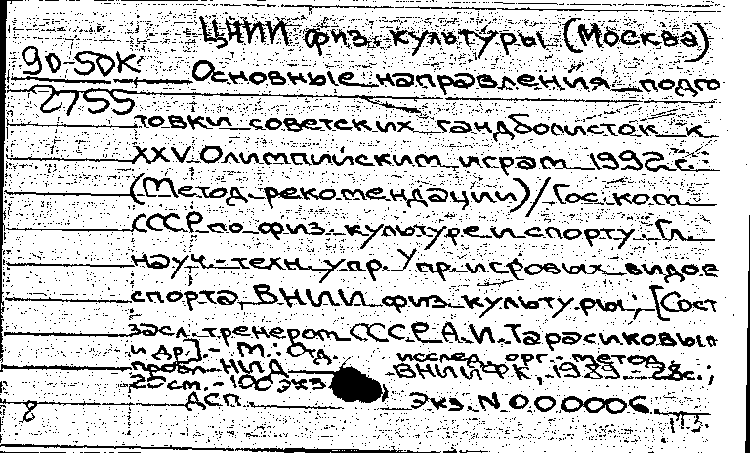 ЦНИИ физ. культуры (Москва)
90-5ДК
2755
Основные направления подго
товки советских гандболисток к
XXV Олимпийским играм 1992 г.:
(Метод. рекомендации) / Гос. ком.
СССР по физ. культуре и спорту. Гл.
науч.-техн. упр. Упр. игровых видов
спорта, ВНИИ физ. культуры; [Сост
засл. тренером СССР А.И. Тарасиковым
и др.]. - М.: Отд. исслед. орг.-метод.
пробл. НИД ВНИИФК, 1989. - 28 с.;
20 см. - 100 экз
ДСП. Экз. N 000006.
8